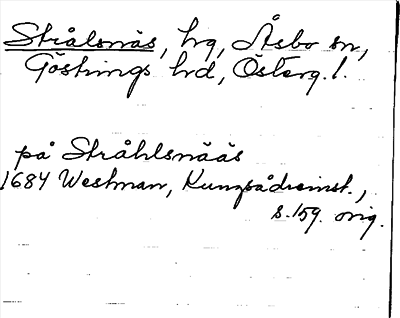 Strålsnäs, hrg, Åsbo sn,
Göstrings hrd, Österg. l.
på Stråhlsnääs
1684 Westman, Kungsådreinst.,
s. 159. orig.